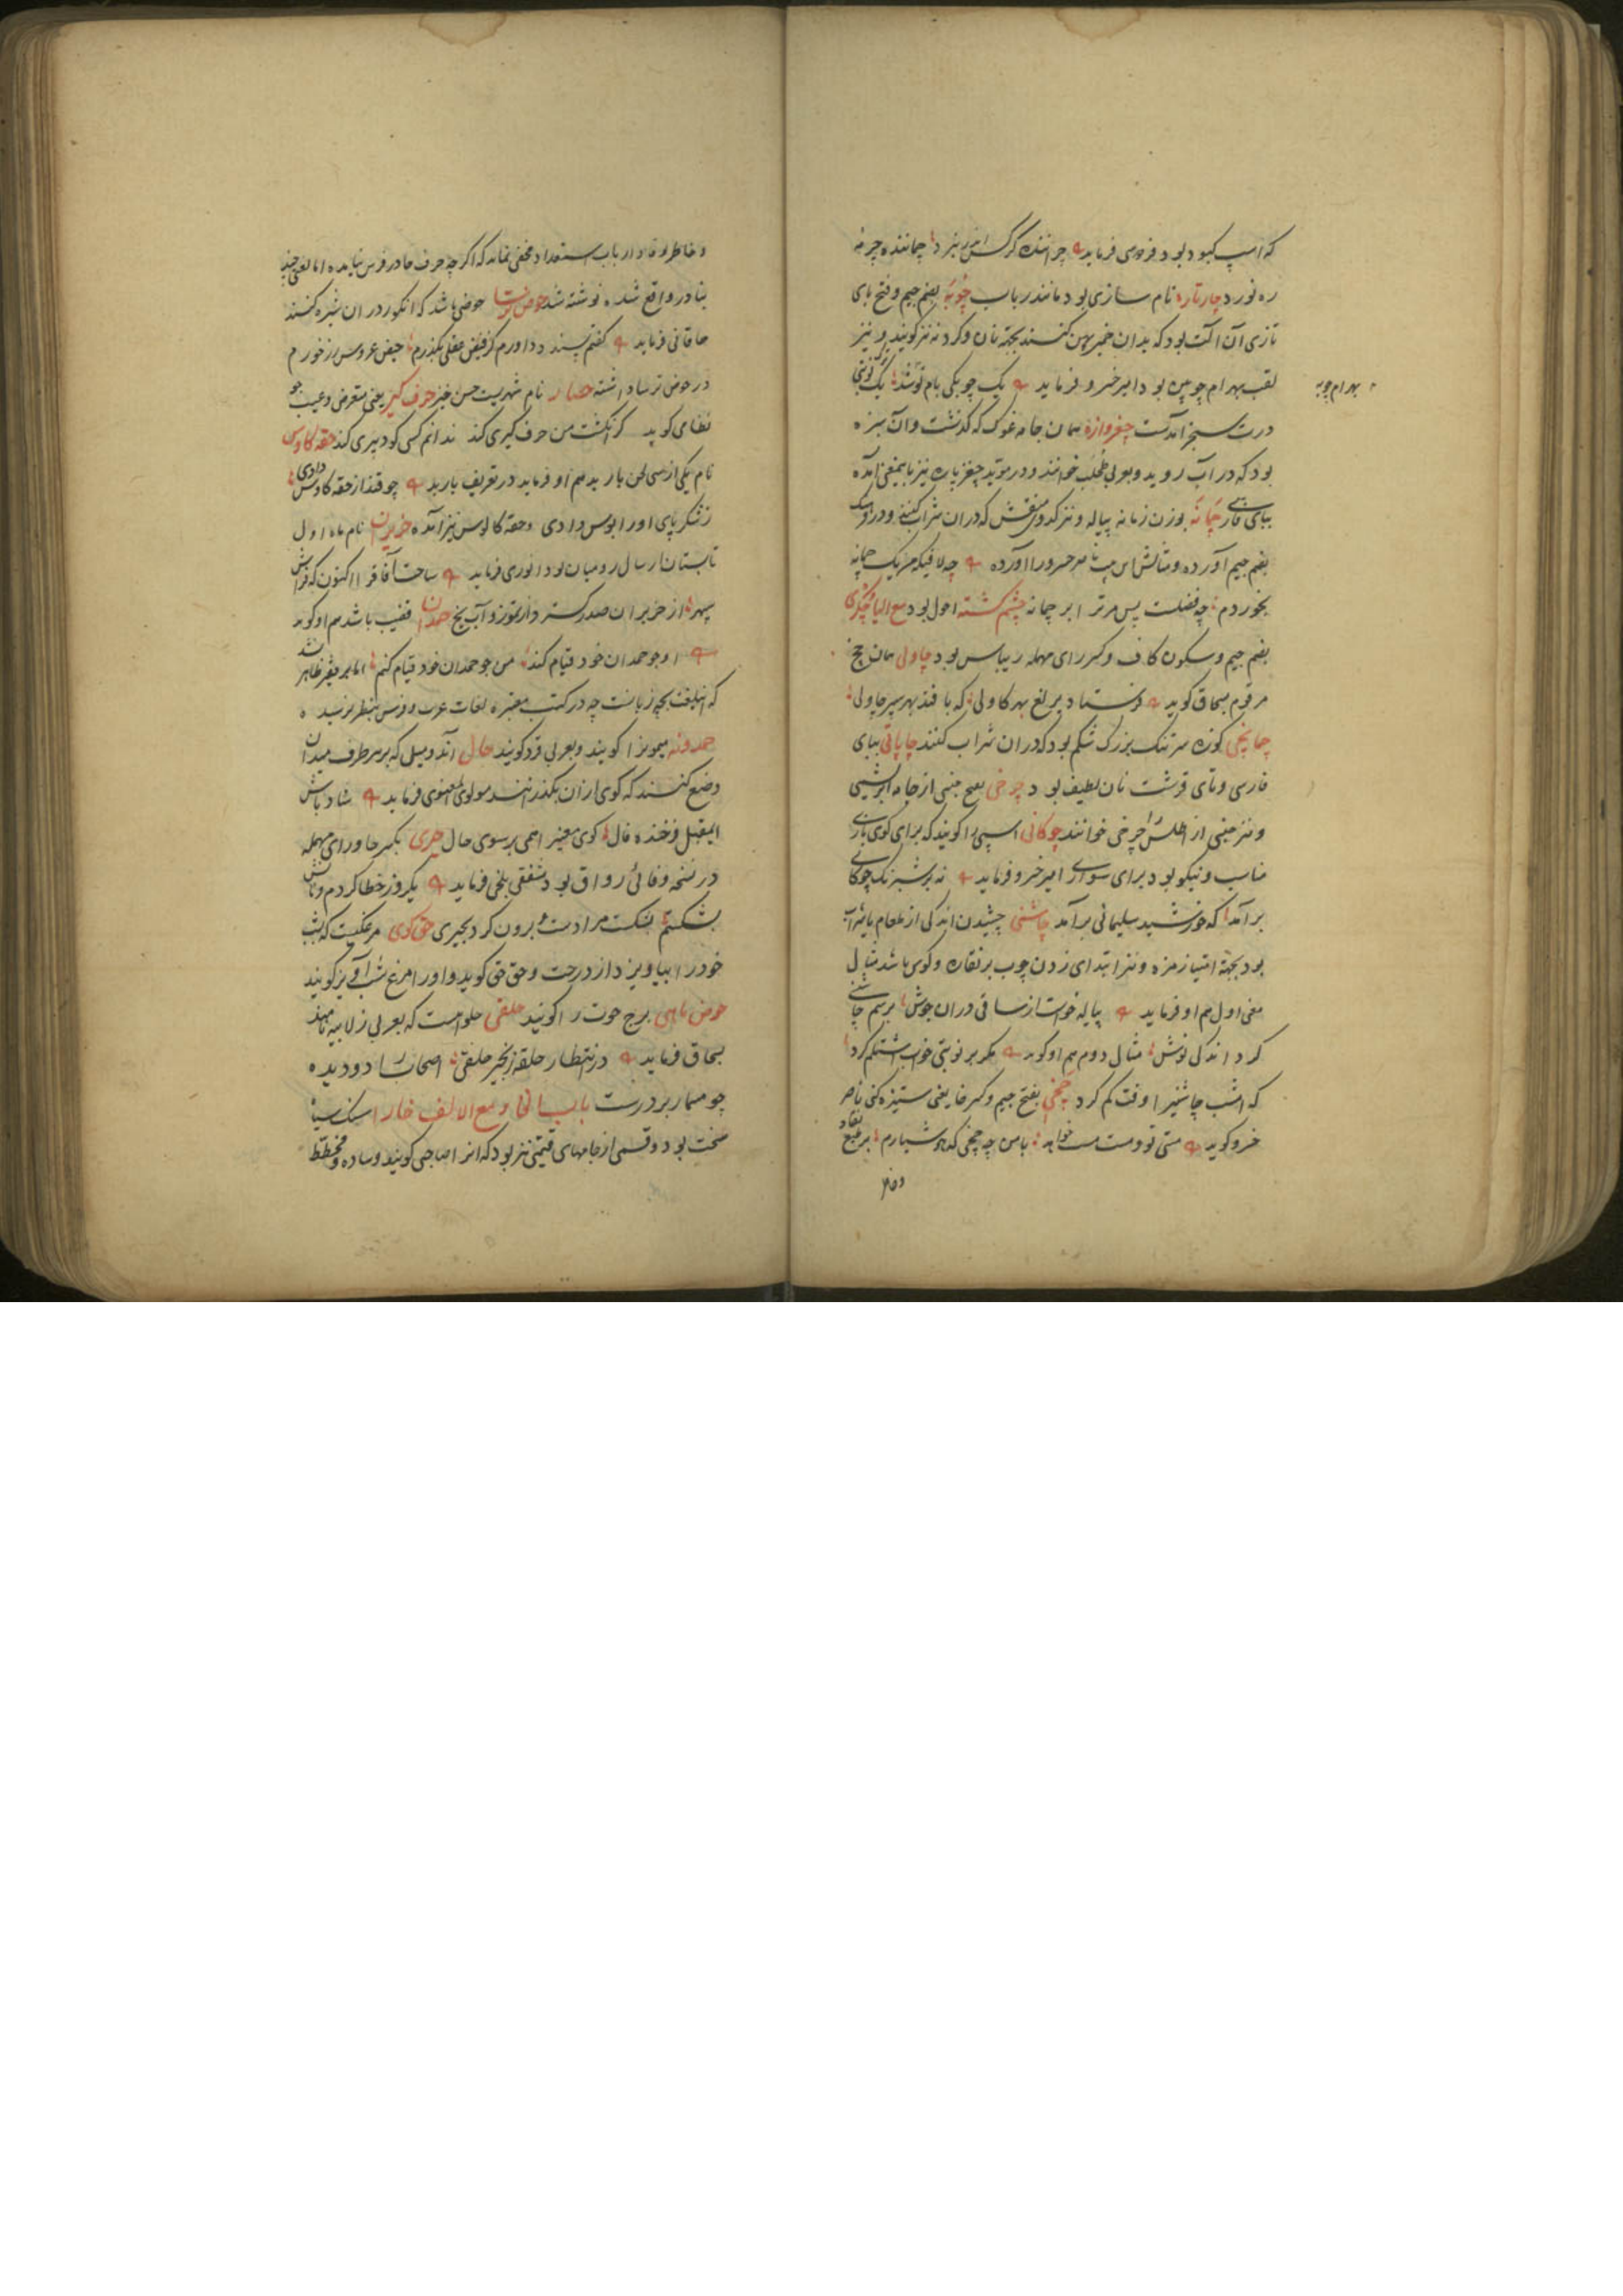 که اسپ کبود بود فردوسی فرماید چرانندهٔ کرکس اندر نبرد چمانندهٔ چرمه
ره نورد چارتاره نام سازی بود مانند رباب چوبه بضم جیم و فتح بای
تازی آن آلت بود که بدان خمیر پهن کنند بجهة نان و کرد نه نیز کویند و نیز
لقب بهرام چوبین بود امیر خسرو فرماید یک چوبکی بام تو شد
بهرام چوبه
درت سنجر آمدست چغزواره همان جامه غوک که کذشت و آن سبزه
بود که در آب روید و بعربی طحلب خوانند و در موید چغزپاره نیز باینمعنی آمده
ببای فارسی چمانه بوزن زمانه پیاله و نیز کدوی منقش که در ان شراب کنند و در
بضم جیم آورده و مثالش این بیت ناصر خسرو را آورده چه لافی که من یک چمانه
بخوردم چه فضلست پس مر ترا بر چمانه چشم کشته احول بود مع الیا چکری
بضم جیم و سکون کاف و کسر رای مهمله ریباس بود چاولی همان چج
مرقوم بسحاق کوید فرستاد برلغ بهر کاولی که بافند بهر سپر چاولی
کوزه سر تنک بزرک شکم بود که در ان شراب کنند چاپاتی ببای
فارسی و تای قرشت نان لطیف بود چرخی بفتح جنسی از جامه ابریشمی
و نیز جنسی از اطلس را چرخی خوانند چوکانی اسپی را کویند که برای کوی بازی
مناسب و نیکو بود برای سواری امیر خسرو فرماید نه بر شبرنک چوکانی
برآمد که خورشید سلیمانی برآمد چاشنی چشیدن اندکی از طعام یا شراب
بود بجهة امتیاز مزه و نیز ابتدای زدن چوب بر نقاره و کوس باشد مثال
معنی اول هم او فرماید پیاله خواست از ساقی در ان جوش برسم چاشنی
کرد اندکی نوش مثال دوم هم او کوید مکر بر نوبتی خواب اشتلم کرد
که امشب چاشنی را وقت کم کرد چخی بفتح جیم و کسر خا یعنی ستیزه کنی ناصر
خسرو کوید مستی تو و مست مست خواهد با من چه چخی که هوشیارم بر طبع نقاد
و خاطر
و خاطر وقاد ارباب استعداد مخفی نماند که اکر چه حرف حا در فرس نیامده اما لغتی چند
بنادر واقع شده نوشته شد حوض ترسا حوضی باشد که انکور در ان شیره کنند
خاقانی فرماید کفتم پسند داورم کز فیض عقلی بگذرم حیض عروس رز خورم
در حوض ترسا داشته حصار نام شهریست حسن خیز حرف کیر یعنی متعرض و عیب جو
نظامی کوید کر انکشت من حرف کیری کند ندانم کسی کو دبیری کند حقه کاوس
نام یکی از سی لحن باربد هم او فرماید در تعریف باربد چو قند از حقه کاوس دادی
ز شکر پای او را بوس دادی و حقه کالوس نیز آمده حزیران نام ماه اول
تابستان از سال رومیان بود انوری فرماید ساحت آفاق را اکنون که فراش
سپهر از حزیران صدر کسترد از تموز و آب یخ حمدان قضیب باشد هم او کوید
او چو حمدان خود قیام کند من چو حمدان خود قیام کنم اما بر فقیر ظاهر نشد
که این لغت بچه زبانست چه در کتب معتبره لغات عرب و فرس بنظر نرسیده
حمدونه میمون را کویند و بعربی قرد کویند حال آن دو میل که بر سر طرف میدان
وضع کنند که کوی از ان بکذرانند مولوی معنوی فرماید شاد باش
ای مقبل فرخنده فال کوی معنی را همی بر سوی حال حیری بکسر حا و رای مهمله
در نسخه وفائی رواق بود شفتی بلخی فرماید یکروز خطا کردم و نانش
بشکستم بشکست مرا دست و برون کرد ز حیری حق کوی مرغکیست که بشب
خود را بیاویزد از درخت و حق حق کوید و او را مرغ شب آویز کویند
حوض ماهی برج حوت را کویند حلقی حلواست که بعربی زلابیه نامند
بسحاق فرماید در انتظار حلقه زنجیر حلقی اصحاب را دو دیده
چو مسمار بر درست باب الخا و مع الالف خارا سنک سیاه
سخت بود و قسمی از جامهای قیمتی نیز بود که آنرا صاحبی کویند و ساده و مخطط